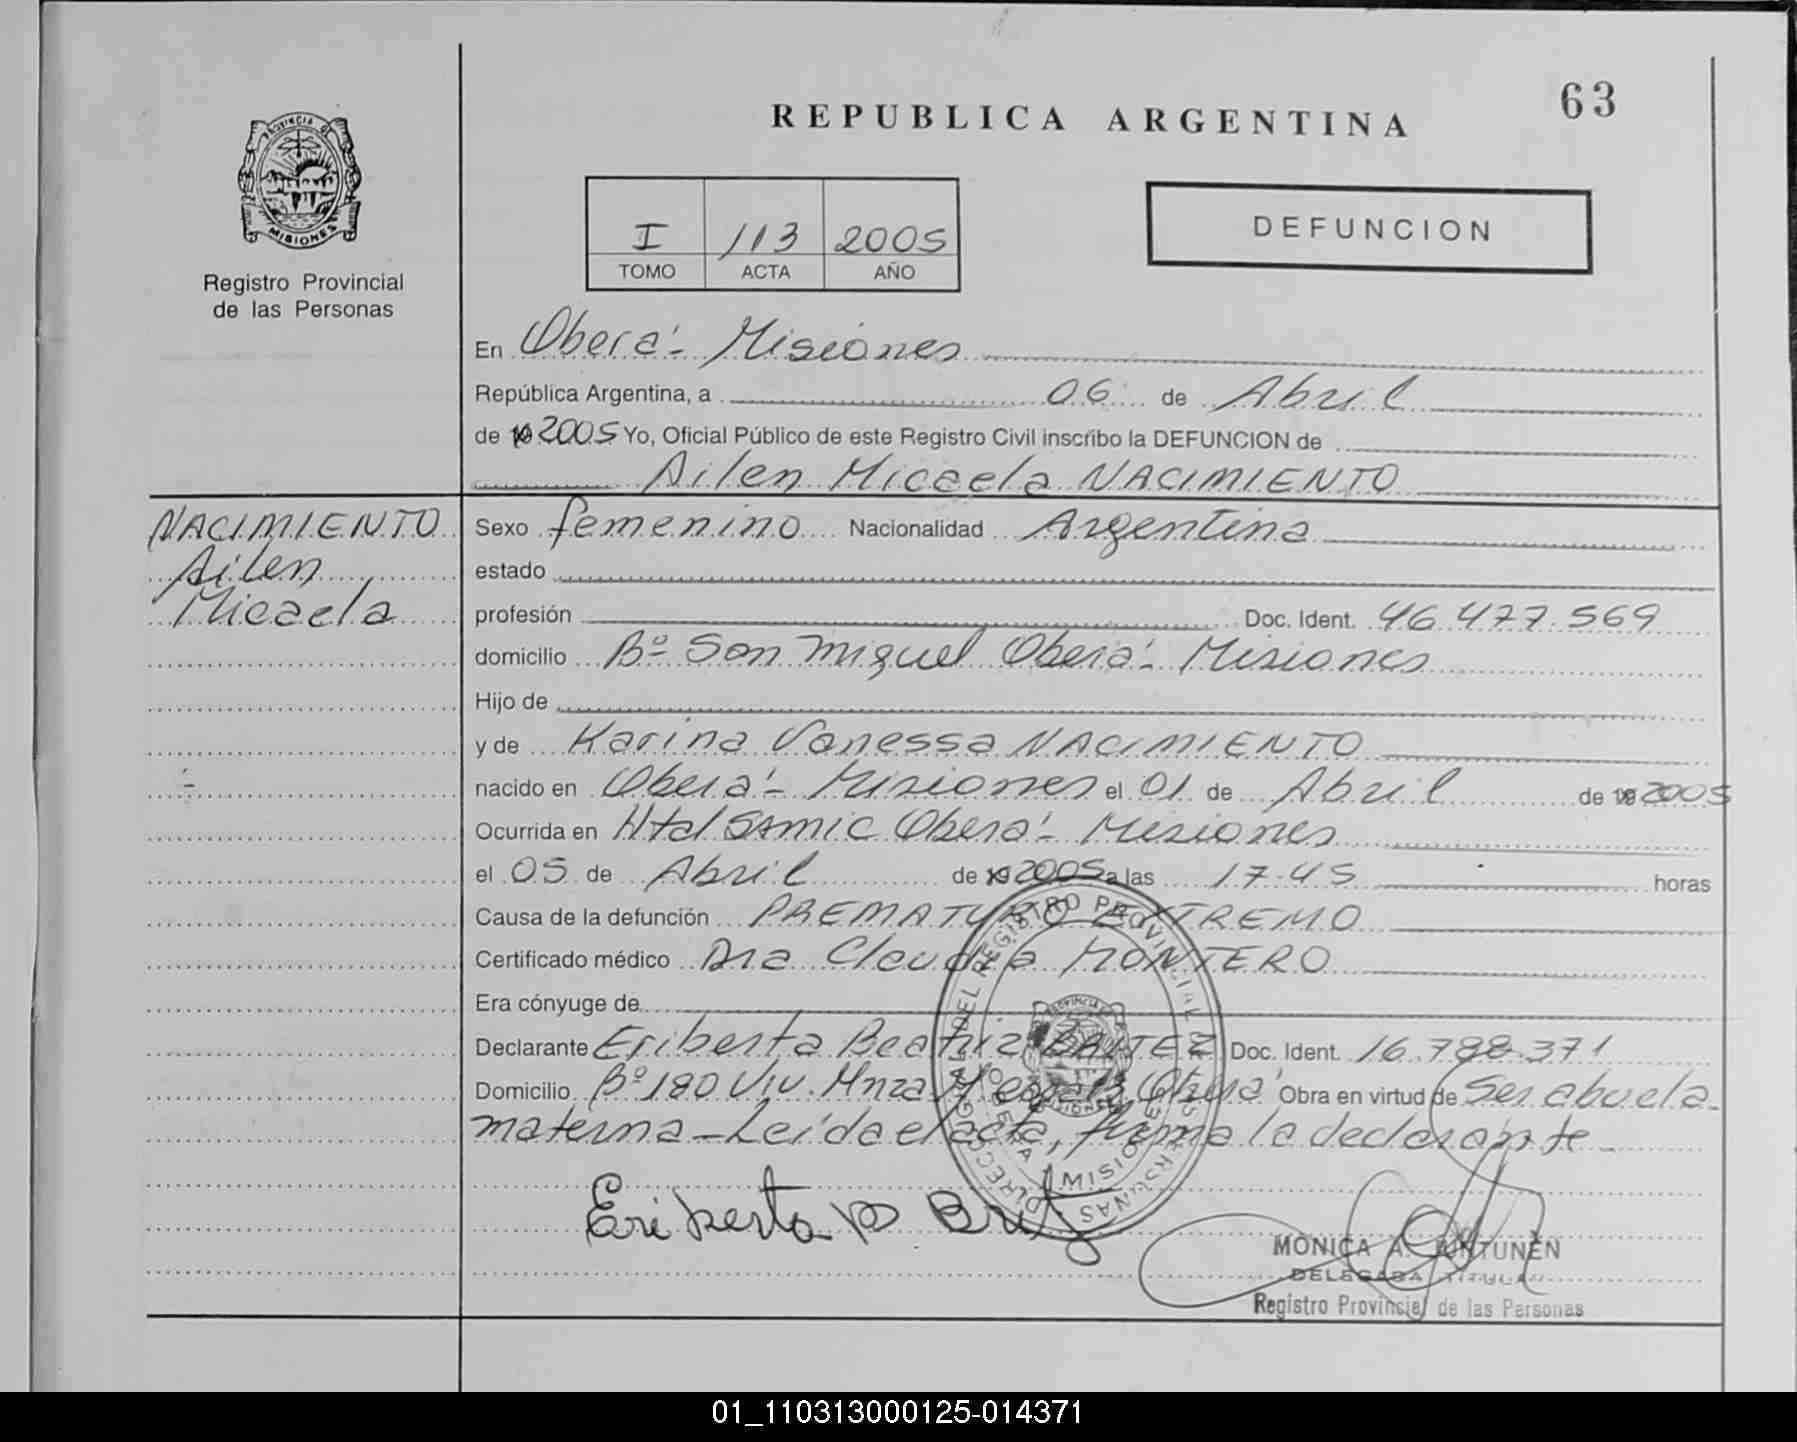 63
REPUBLICA ARGENTINA
PROVINCIA DE
MISIONES
Registro Provincial
de las Personas
I 113 2005
TOMO ACTA AÑO
DEFUNCION
En Oberá - Misiones
República Argentina, a 06 de Abril
de 19 2005 Yo, Oficial Público de este Registro Civil inscribo la DEFUNCION de
Ailen Micaela NACIMIENTO
NACIMIENTO
Ailen
Micaela
Sexo femenino Nacionalidad Argentina
estado
profesión Doc. Ident. 46.477.569
domicilio Bº San Miguel Oberá - Misiones
Hijo de
y de Karina Vanessa NACIMIENTO
nacido en Oberá - Misiones el 01 de Abril de 19 2005
Ocurrida en Htal SAMIC Oberá - Misiones
el 05 de Abril de 19 2005 a las 17.45 horas
Causa de la defunción PREMATURO EXTREMO
Certificado médico Dra Claudia MONTERO
Era cónyuge de
Declarante Eriberta Beatriz Doc. Ident. 16.788.371
Domicilio Bº 180 Viv. Mnza Oberá Obra en virtud de Ser abuela
materna - Leída el acta, firma la declarante
Eriberta B
MONICA A. ANTUNEN
DELEGADA TITULAR
Registro Provincial de las Personas
DIRECC GRAL DEL REGISTRO PROVINCIAL DE LAS PERSONAS
OBERA MISIONES
01_110313000125-014371